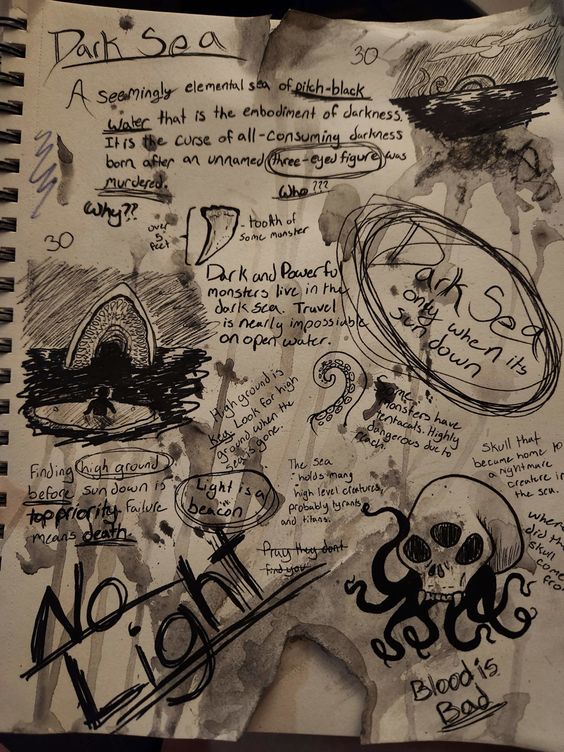 Dark Sea
30
A seemingly elemental sea of pitch-black
water that is the embodiment of darkness.
It is the curse of all-consuming darkness
born after an unnamed three-eyed figure was
murdered.
Who???
Why??
over
5
feet
- tooth of
some monster
30
Dark and Powerful
monsters live in the
dark sea. Travel
is nearly impossiable
on open water.
Dark Sea
only when its
sun down
High ground is
Key. Look for high
ground when the
sea is gone.
Some
monsters have
tentacals. Highly
dangerous due to
reach.
Finding high ground
before sun down is
top priority failure
means death.
Light is a
beacon
The sea
holds many
high level creatures,
probably tyrants
and titans.
Pray they dont
find you
Skull that
became home to
a nightmare
creature in
the sea.
where
did the
skull
come
No Light
Blood is
Bad